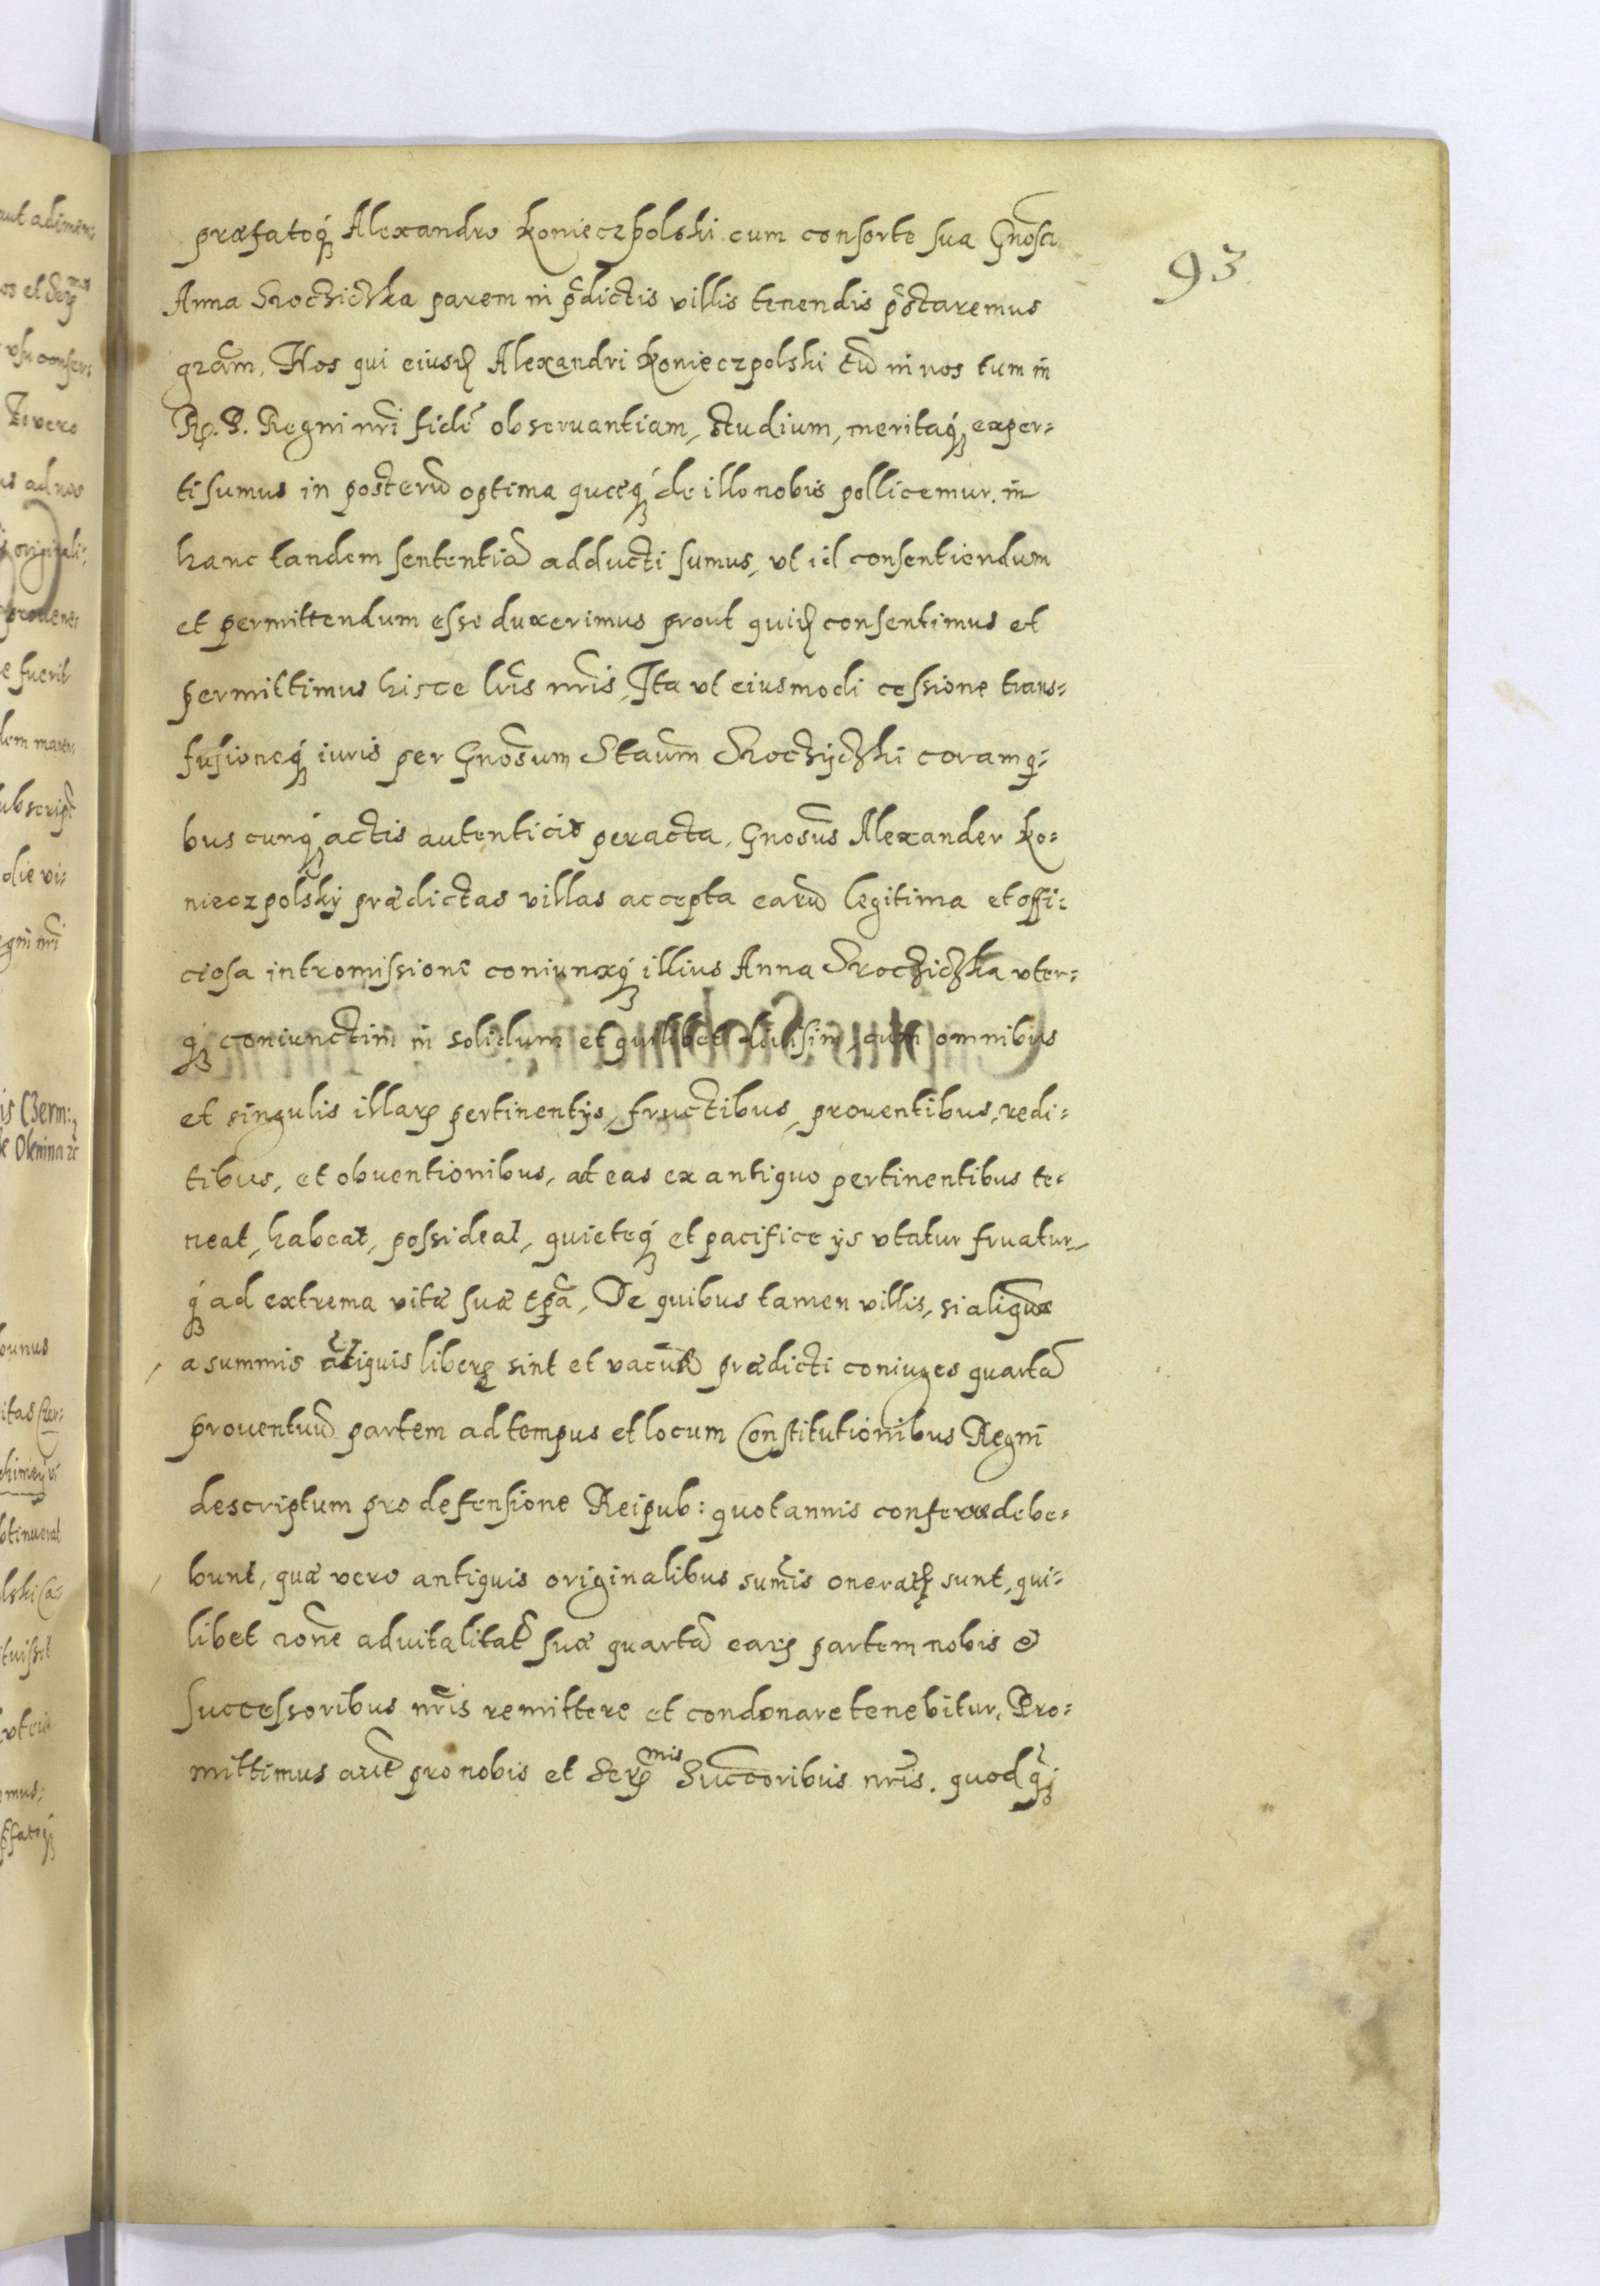 præfatoq́ʒ Alexandro Konieczpolski cum consorte sua Gnõsa
93
Anna Srocziczka parem in p̃dictis villis tenendis p̃staremus
grãm, Nos qui eiusd Alexandri Konieczpolski tũ in nos tum in
Rp. P. Regni nr̃i fidẽ obseruantiam, studium, meritaq́ʒ exper=
ti sumus in posterũ optima quæq́ʒ de illo nobis pollicemur. in
hanc tandem sententiã adducti sumus, ut id consentiendum
et permittendum esse duxerimus prout quid consentimus et
permittimus hisce lr̃is nr̃is, Ita ut eiusmodi cessione trans=
fusioneq́ʒ iuris per Gnõsum Staũm Sroczÿczki coram q̃=
bus cunq́ʒ actis autenticis peracta, Gnosũs Alexander Ko=
nieczpolskÿ prædictas villas accepta earũ legitima et offi=
ciosa intromissione coniunxq́ʒ illius Anna Srocziczka vter=
q́ʒ coniunctim in solidum et quilibet diuisim, cum omnibus
et singulis illarꝝ pertinentÿs, fructibus, prouentibus, redi=
tibus, et obuentionibus, ad eas ex antiquo pertinentibus te=
neat, habeat, possideat, quieteq́ʒ et pacifice ÿs vtatur fruatur
q́ʒ ad extrema vitæ suæ tp̃a, De quibus tamen villis, si aliquæ
a summis ãtiquis liberę sint et vacuæ prædicti coniuges quartã
prouentuũ partem ad tempus et locum Constitutionibus Regni
descriptum pro defensione Reipub: quotannis conferre debe=
bunt, quæ vero antiquis originalibus sum̃is oneratę sunt, qui=
libet rõne aduitalitatis suæ quartã earꝝ partem nobis &
successoribus nr̃is remittere et condonare tenebitur, Pro=
mittimus aut̃ pro nobis et Serꝑmis Succ̃oribus nr̃is. quod q̃ʒ